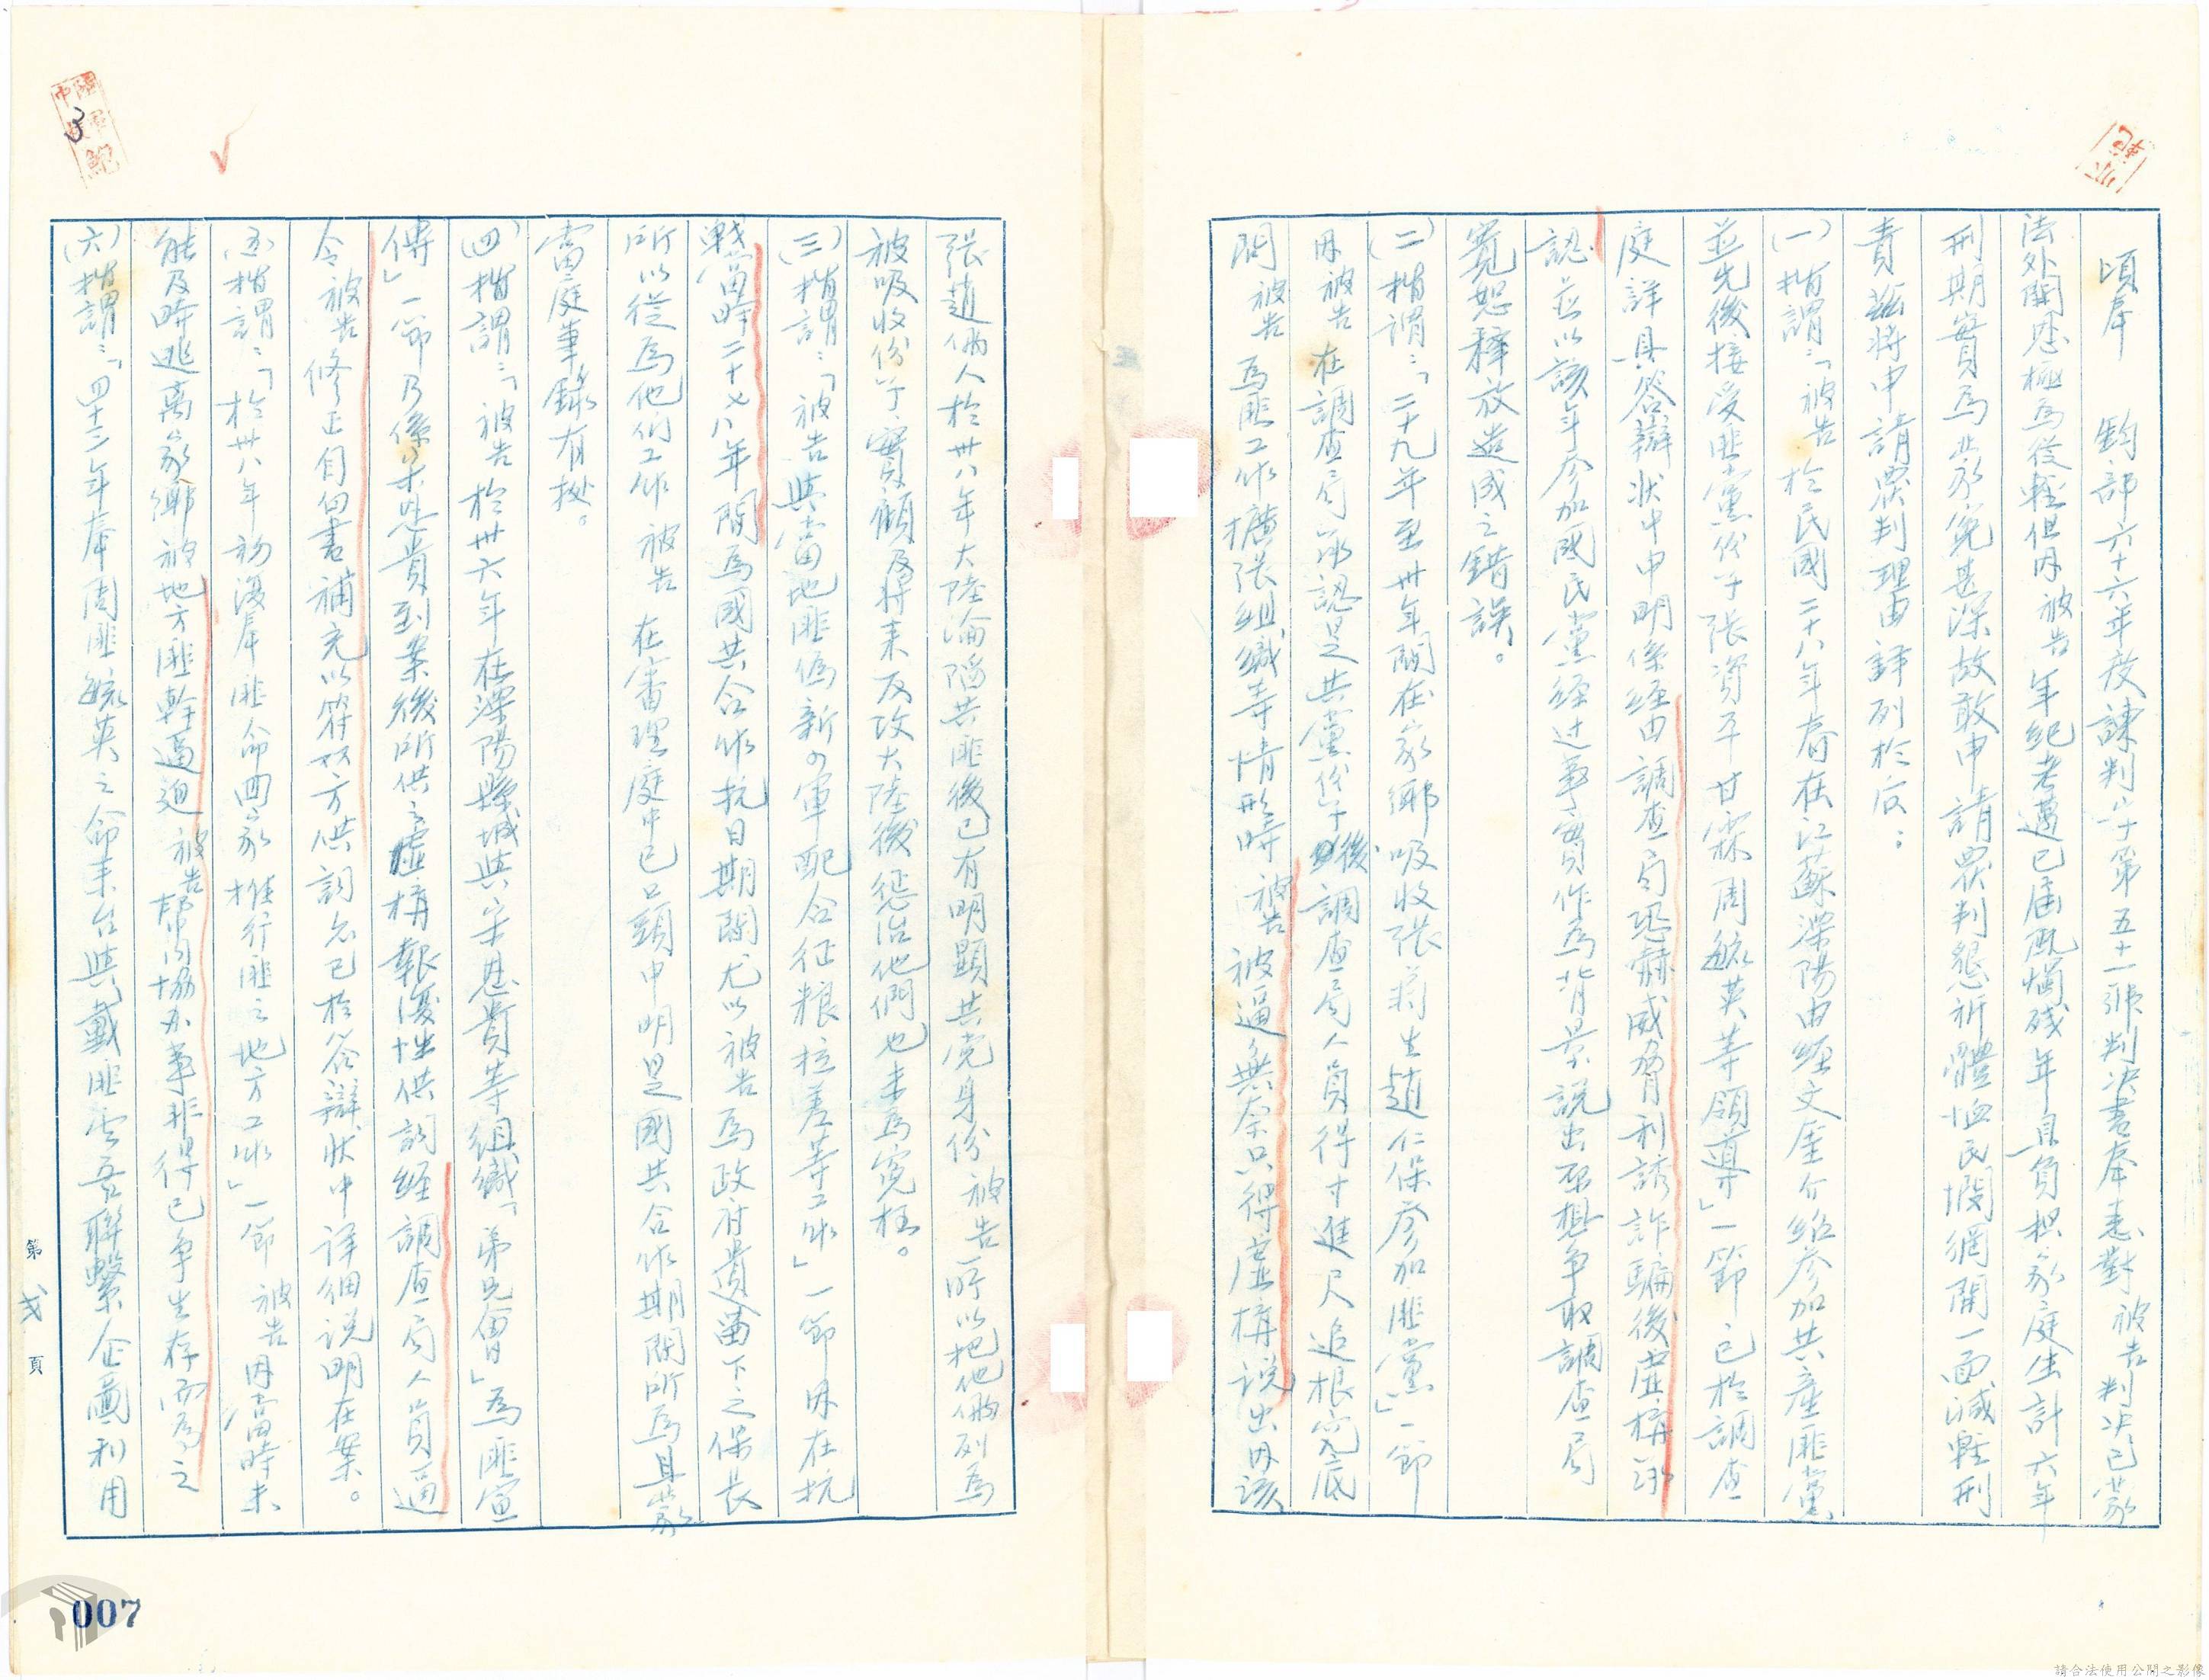 頃奉　鈞部六十六年度諫判字第五十一號判決書奉悉對被告判決已蒙
法外開恩極為從輕但因被告年紀老邁已屆風燭殘年且負担家庭生計六年
刑期實為此家冤甚深故敢申請覆判懇祈體恤民憫網開一面減輕刑
責茲將申請覆判理由詳列於后：
(一)指謂：「被告於民國二十八年春在江蘇溧陽由經文奎介紹參加共產匪黨
並先後接受匪黨份子張資平甘霖周毓英等領導」一節已於調查
庭詳具答辯狀中申明係經由調查局恐嚇威脅利誘詐騙後虛構承
認並以該年參加國民黨經过事實作為背景說出不想爭取調查局
寬恕釋放造成之錯誤。
(二)指謂：「二十九年至卅年間在家鄉吸收張蔚生趙仁保參加匪黨」一節
因被告在調查局承認是共黨份子後調查局人員得寸進尺追根究底
問被告為匪工作擴張組織等情形時被告被逼無奈只得虛構说出因该
張趙倆人於卅八年大陸淪陷共匪後已有明顯共党身份被告所以把他倆列為
被吸收份子實顧及將来反攻大陸後懲治他們也未為冤枉。
(三)指謂：「被告與當地匪偽新四軍配合征粮拉差等工作」一節因在抗
戰當時二十七八年間為國共合作抗日期間尤以被告為政府遺留下之保長
所以從為他们工作被告在審理庭中已口頭申明是國共合作期間所為且蒙
當庭筆錄有據。
(四)指謂：「被告於卅六年在溧陽縣城與宋恩貴等組織「弟兄會」為匪宣
傳」一節乃係宋恩貴到案後所供之虛構報復性供詞經調查局人員逼
令被告修正自白書補充以符双方供詞名已於答辯狀中详細说明在案。
(五)指謂：「於卅八年初復奉匪命回家推行匪之地方工作」一節被告因當時未
能及時逃离家鄉被地方匪幹逼迫被告帮同協办事非得已争生存而為之
(六)指謂：「四十二年奉周匪毓英之命来台與戴匪雲吾聯繫企圖利用
第弍頁
007
請合法使用公開之影像